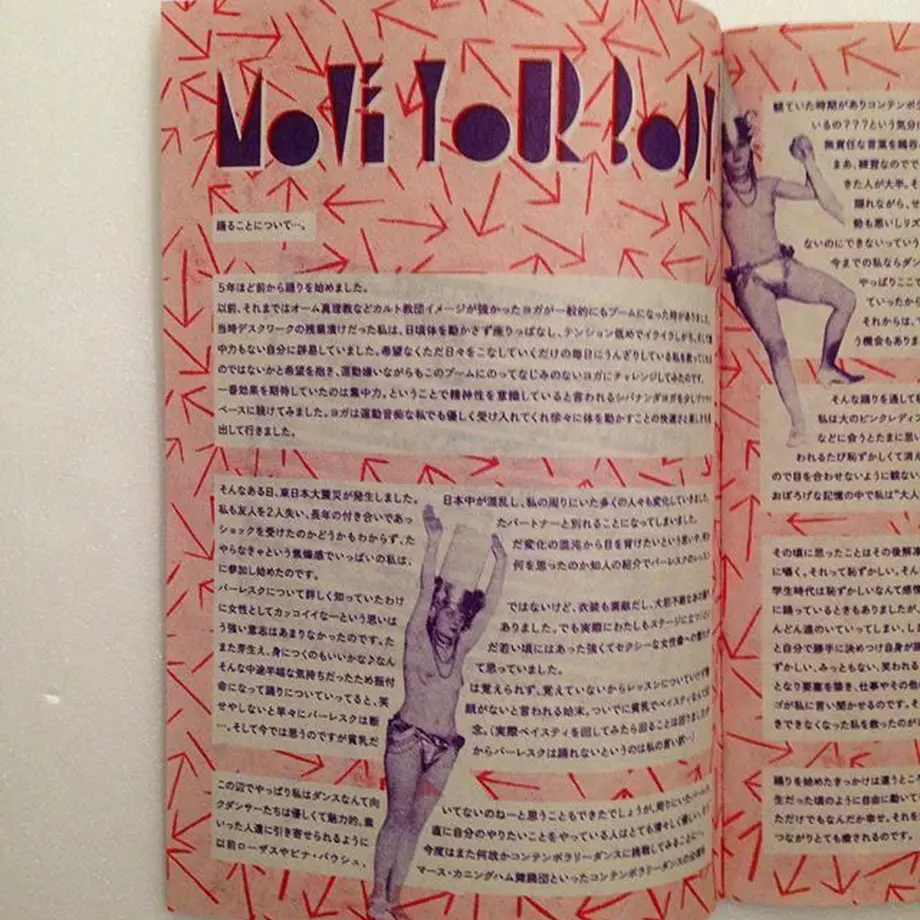 MOVE YOUR BODY
踊ることについて…。
5年ほど前から踊りを始めました。
以前、それまではオーム真理教などカルト教団イメージが強かったヨガが一般的にもブームになった時がありました。
当時デスクワークの残業漬けだった私は、日頃体を動かさず座りっぱなし、テンション低めでイライラしがち、そして集
中力もない自分に辟易していました。希望なくただ日々をこなしていくだけの毎日にうんざりしている私を救ってくれる
のではないかと希望を抱き、運動嫌いながらもこのブームにのってなじみのないヨガにチャレンジしてみたのです。
一番効果を期待していたのは集中力。ということで精神性を意識していると言われるシバナンダヨガを少しずつマイ
ペースに続けてみました。ヨガは運動音痴な私でも優しく受け入れてくれ徐々に体を動かすことの快適さと楽しさを見
出して行きました。
そんなある日、東日本大震災が発生しました。 日本中が混乱し、私の周りにいた多くの人々も変化していきました。
私も友人を2人失い、長年の付き合いであっ たパートナーと別れることになってしまいました。
ショックを受けたのかどうかもわからず、た だ変化の混沌から目を背けたいという思い中、何か
やらなきゃという焦燥感でいっぱいの私は、 何を思ったのか知人の紹介でバーレスクのレッスン
に参加し始めたのです。
バーレスクについて詳しく知っていたわけ ではないけど、衣装も素敵だし、大胆不敵なあの
に女性としてカッコイイなーという思いは ありました。でも実際にわたしもステージに立つ
う強い意志はあまりなかったのです。た だ若い頃にはあった強くてセクシーな女性像への
また芽生え、身につくのもいいかな♪なん て思っていました。
そんな中途半端な気持ちだったため振付 は覚えられず、覚えていないからレッスンについていけず
命になって踊りについていってると、笑 顔がないと言われる始末。ついでに貧乳でペイスティ
せやしないと早々にバーレスクは断 念。（実際ペイスティを回してみたら回ることは回りましたが
…。そして今では思うのですが貧乳だ からバーレスクは踊れないというのは私の言い訳…）
この辺でやっぱり私はダンスなんて向 いてないのねーと思うこともできたでしょうが、周りにいた
クダンサーたちは優しくて魅力的、素 直に自分のやりたいことをやっている人はとても清々しく
いった人達に引き寄せられるように 今度はまた何故かコンテンポラリーダンスに挑戦してみることに。
以前ローザスやピナ・バウシュ、 マース・カニングハム舞踊団といったコンテンポラリーダンスの
観ていた時期がありコンテンポラ
いるの???という気分に
無責任な言葉を
まあ、練習なので
きた人が大半。そ
隠れながら、せ
勢も悪いしリス
ないのにできないっていう
今までの私ならダン
やっぱりここで
ていったから
それからは、
う機会もありま
そんな踊りを通して私
私は大のピンクレディ
などに会うとたまに思い
われるたび恥ずかしくて消え
ので目を合わせないように観ない
おぼろげな記憶の中で私は“大人
その頃に思ったことはその後解凍
に囁く。それって恥ずかしい。そん
学生時代は恥ずかしいなんて感情
に踊っているときもありましたが、
んどん遠のいていってしまい、しま
と自分で勝手に決めつけ自身が踊
ずかしい、みっともない、笑われる
となり要塞を築き、仕事やその他の
ゴが私に言い聞かせるのです。そ
きできなくなった私を救ったのが
踊りを始めたきっかけは違うところ
生だった頃のように自由に動いて
ただけでもなんだか幸せ。それを
つながりとても癒されるのです。